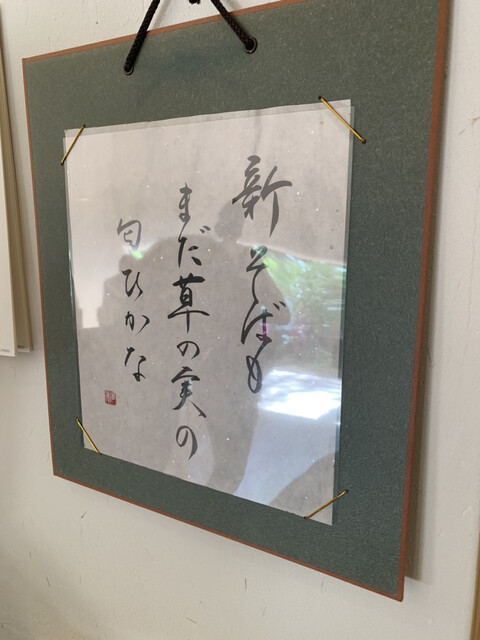 新そばも
まだ草の実の
匂ひかな